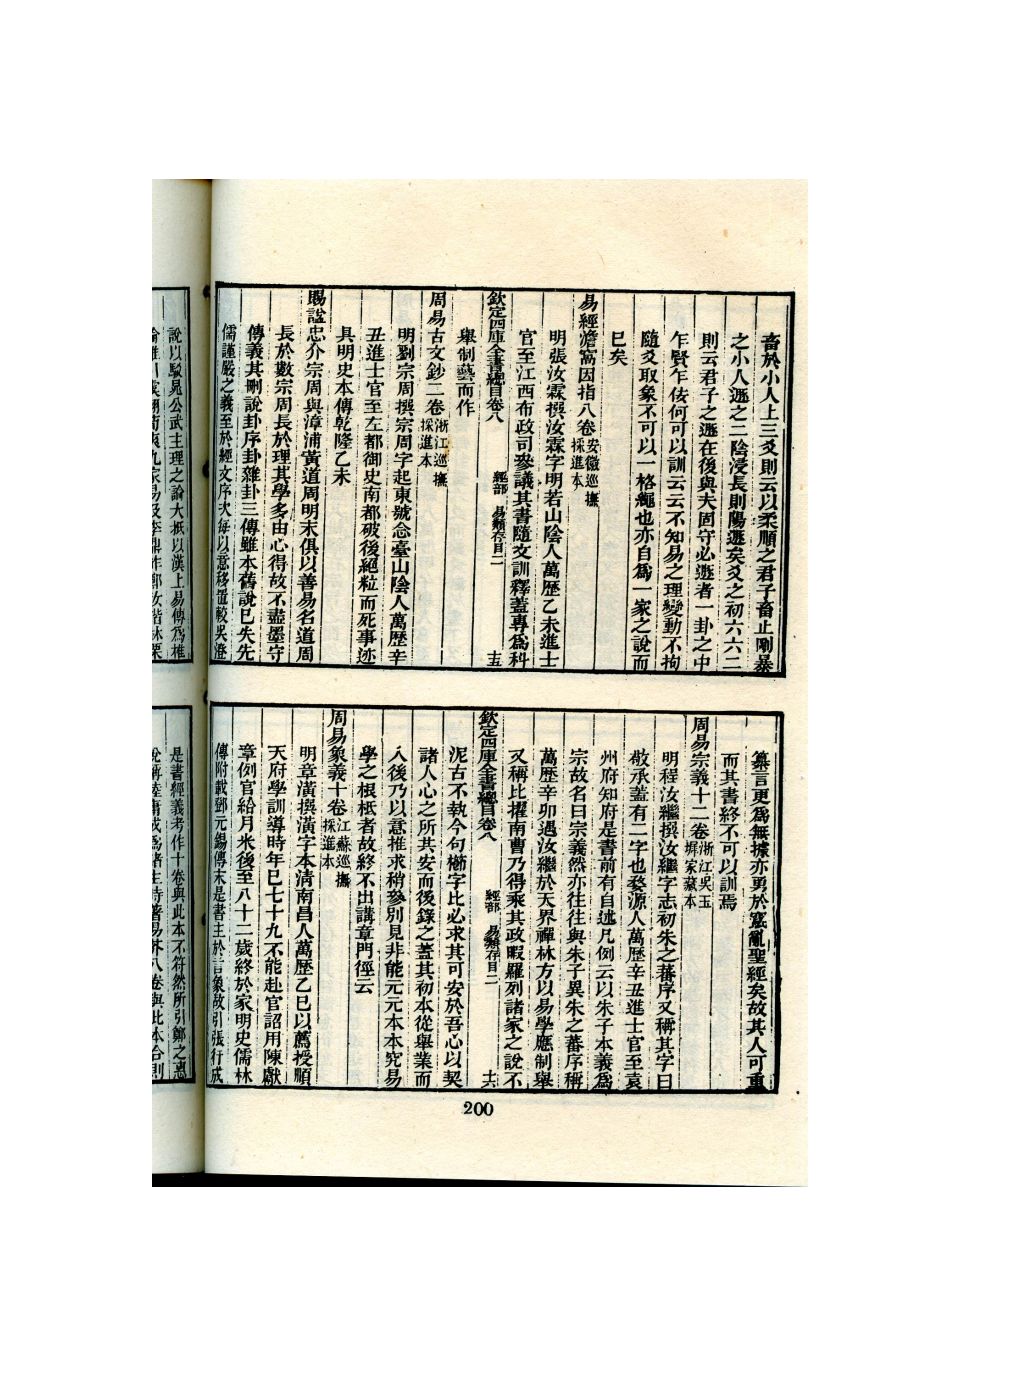 畜於小人上三爻則云以柔順之君子畜止剛暴
之小人遯之二陰浸長則陽遯矣爻之初六六二
則云君子之遯在後與夫固守必遯者一卦之中
乍賢乍佞何可以訓云云不知易之理變動不拘
隨爻取象不可以一格繩也亦自爲一家之說而
已矣
易經澹窩因指八卷安徽巡撫採進本
明張汝霖撰汝霖字明若山陰人萬歷乙未進士
官至江西布政司參議其書隨文訓釋蓋專爲科
欽定四庫全書總目卷八 經部 易類存目二 十五
舉制藝而作
周易古文鈔二卷浙江巡撫採進本
明劉宗周撰宗周字起東號念臺山陰人萬歷辛
丑進士官至左都御史南都破後絕粒而死事迹
具明史本傳乾隆乙未
賜諡忠介宗周與漳浦黃道周明末俱以善易名道周
長於數宗周長於理其學多由心得故不盡墨守
傳義其刪說卦序卦雜卦三傳雖本舊說已失先
儒謹嚴之義至於經文序次每以意移置較吳澄
纂言更爲無據亦勇於竄亂聖經矣故其人可重
而其書終不可以訓焉
周易宗義十二卷浙江吳玉墀家藏本
明程汝繼撰汝繼字志初朱之蕃序又稱其字曰
敬承蓋有二字也婺源人萬歷辛丑進士官至袁
州府知府是書前有自述凡例云以朱子本義爲
宗故名曰宗義然亦往往與朱子異朱之蕃序稱
萬歷辛卯遇汝繼於天界禪林方以易學應制舉
又稱比擢南曹乃得乘其政暇羅列諸家之說不
欽定四庫全書總目卷八 經部 易類存目二 十六
泥古不執今句櫛字比必求其可安於吾心以契
諸人心之所共安而後錄之蓋其初本從舉業而
入後乃以意推求稍參別見非能元元本本究易
學之根柢者故終不出講章門徑云
周易象義十卷江蘇巡撫採進本
明章潢撰潢字本清南昌人萬歷乙巳以薦授順
天府學訓導時年已七十九不能赴官詔用陳獻
章例官給月米後至八十二歲終於家明史儒林
傳附載鄧元錫傳末是書主於言象故引張行成
說以駁晁公武主理之論大抵以漢上易傳爲椎
是書經義考作十卷與此本不符然所引鄭之惠
200